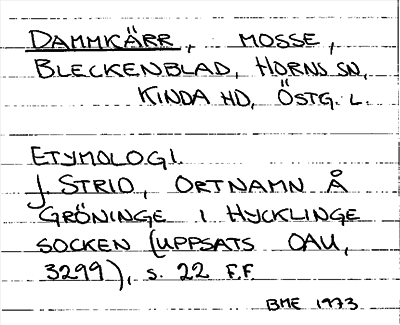 DAMMKÄRR, MOSSE,
BLECKENBLAD, HORNS SN,
KINDA HD, ÖSTG. L.
ETYMOLOGI.
J. STRID, ORTNAMN Å
GRÖNINGE I HYCKLINGE
SOCKEN (UPPSATS OAU,
3299), S. 22 F.F.
BME 1973